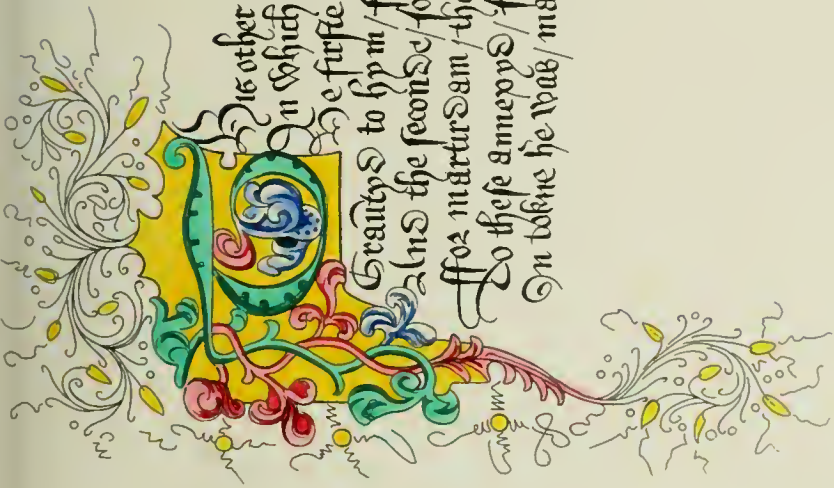 This other
In which
firste
Grauntyd to hym /
And the seconde / fo
ffor martirdam / the
To these annexyd /
In tokne he was / ma